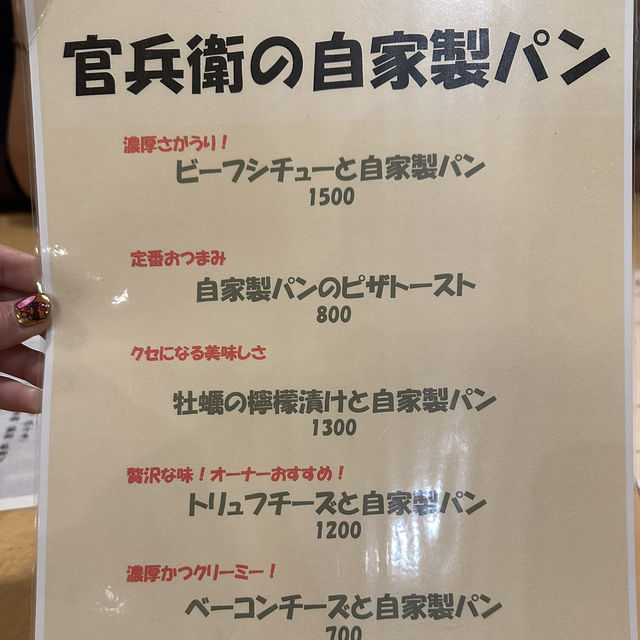 官兵衛の自家製パン
濃厚さがうり！
ビーフシチューと自家製パン
1500
定番おつまみ
自家製パンのピザトースト
800
クセになる美味しさ
牡蠣の檸檬漬けと自家製パン
1300
贅沢な味！オーナーおすすめ！
トリュフチーズと自家製パン
1200
濃厚かつクリーミー！
ベーコンチーズと自家製パン
700